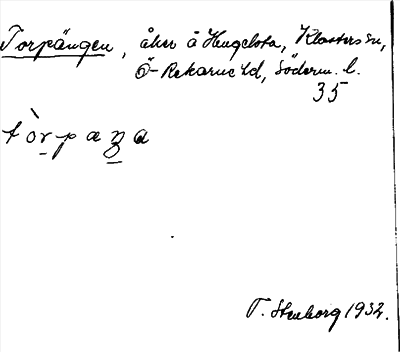 Torpängen, åker å Hugelsta, Klosters sn,
Ö-Rekarne hd, Söderm. l.
35
tòrpaŋa
T. Stenborg 1932.